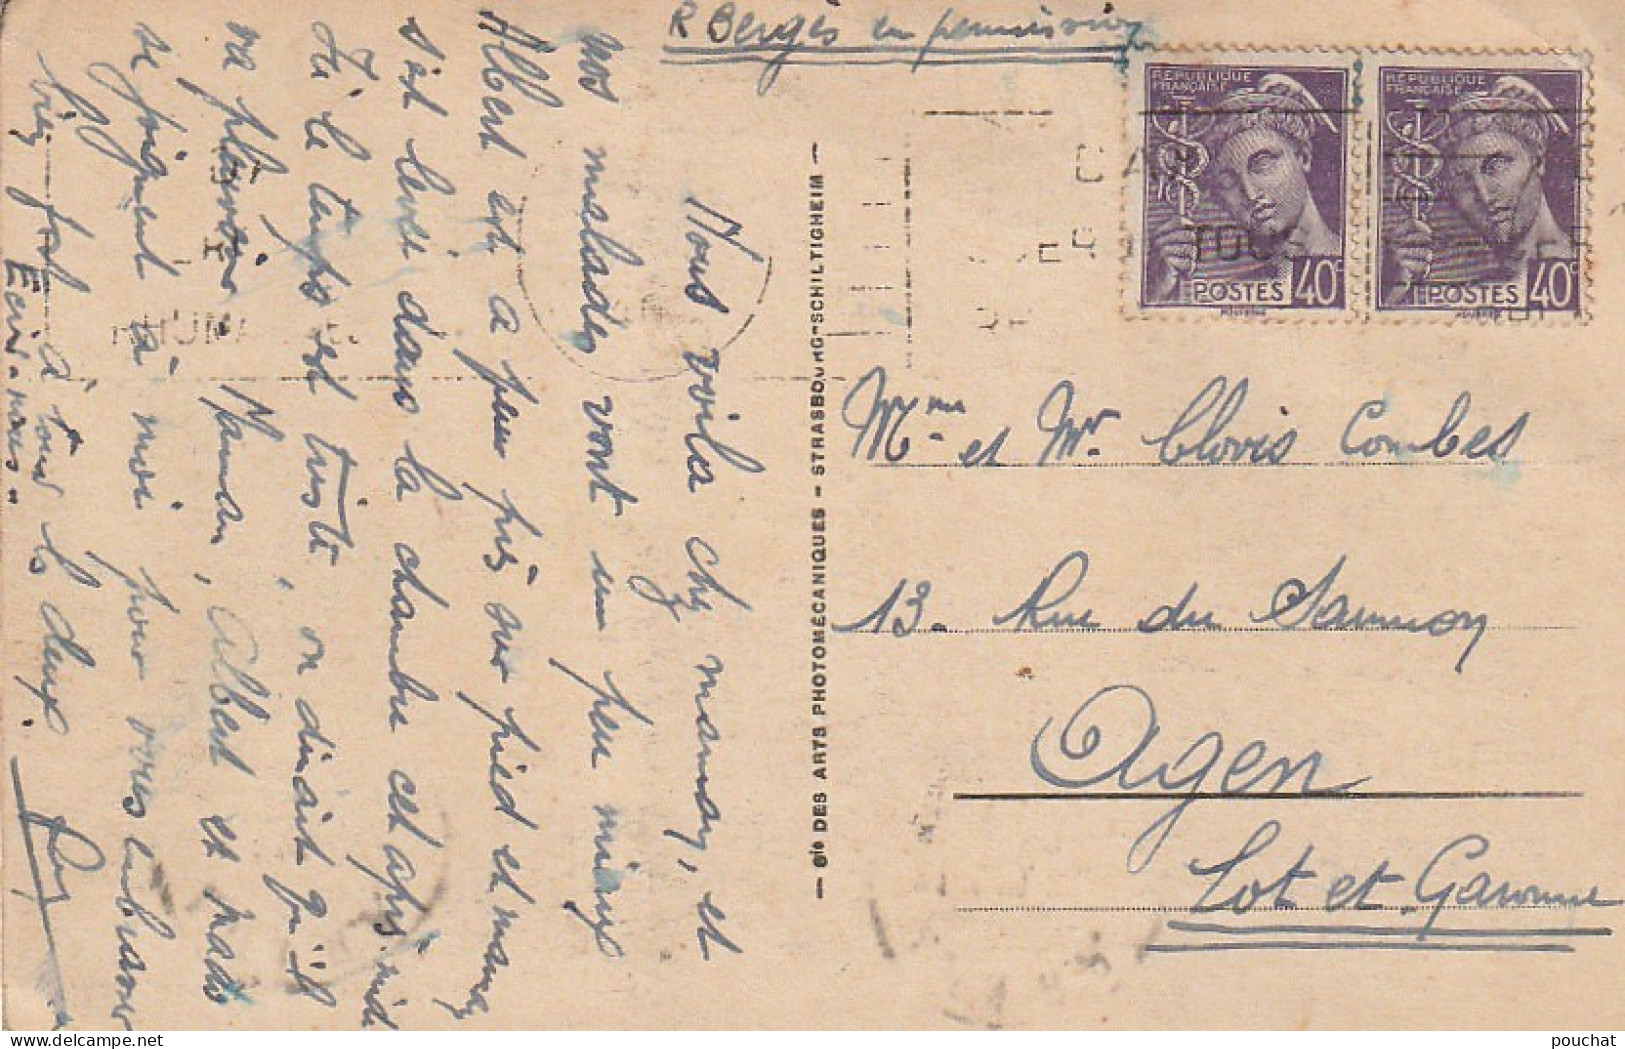 R Bergès en permission
Nous voila chez maman, et
nos malades vont un peu mieux
Albert est a peu près sur pied et maman
s'est levée dans la chambre cet après midi
Le temps est triste, on dirait qu'il
va pleuvoir Maman, Albert et Mado
se joignent à moi pour vous embrasser
bien fort à tous les deux.
Ecris-nous.
RÉPUBLIQUE FRANÇAISE
POSTES 40c
RÉPUBLIQUE FRANÇAISE
POSTES 40c
Cie DES ARTS PHOTOMÉCANIQUES - STRASBOURG-SCHILTIGHEIM -
Mme et Mr Clovis Combes
13. Rue du Saumon
Agen
Lot et Garonne
pouchat